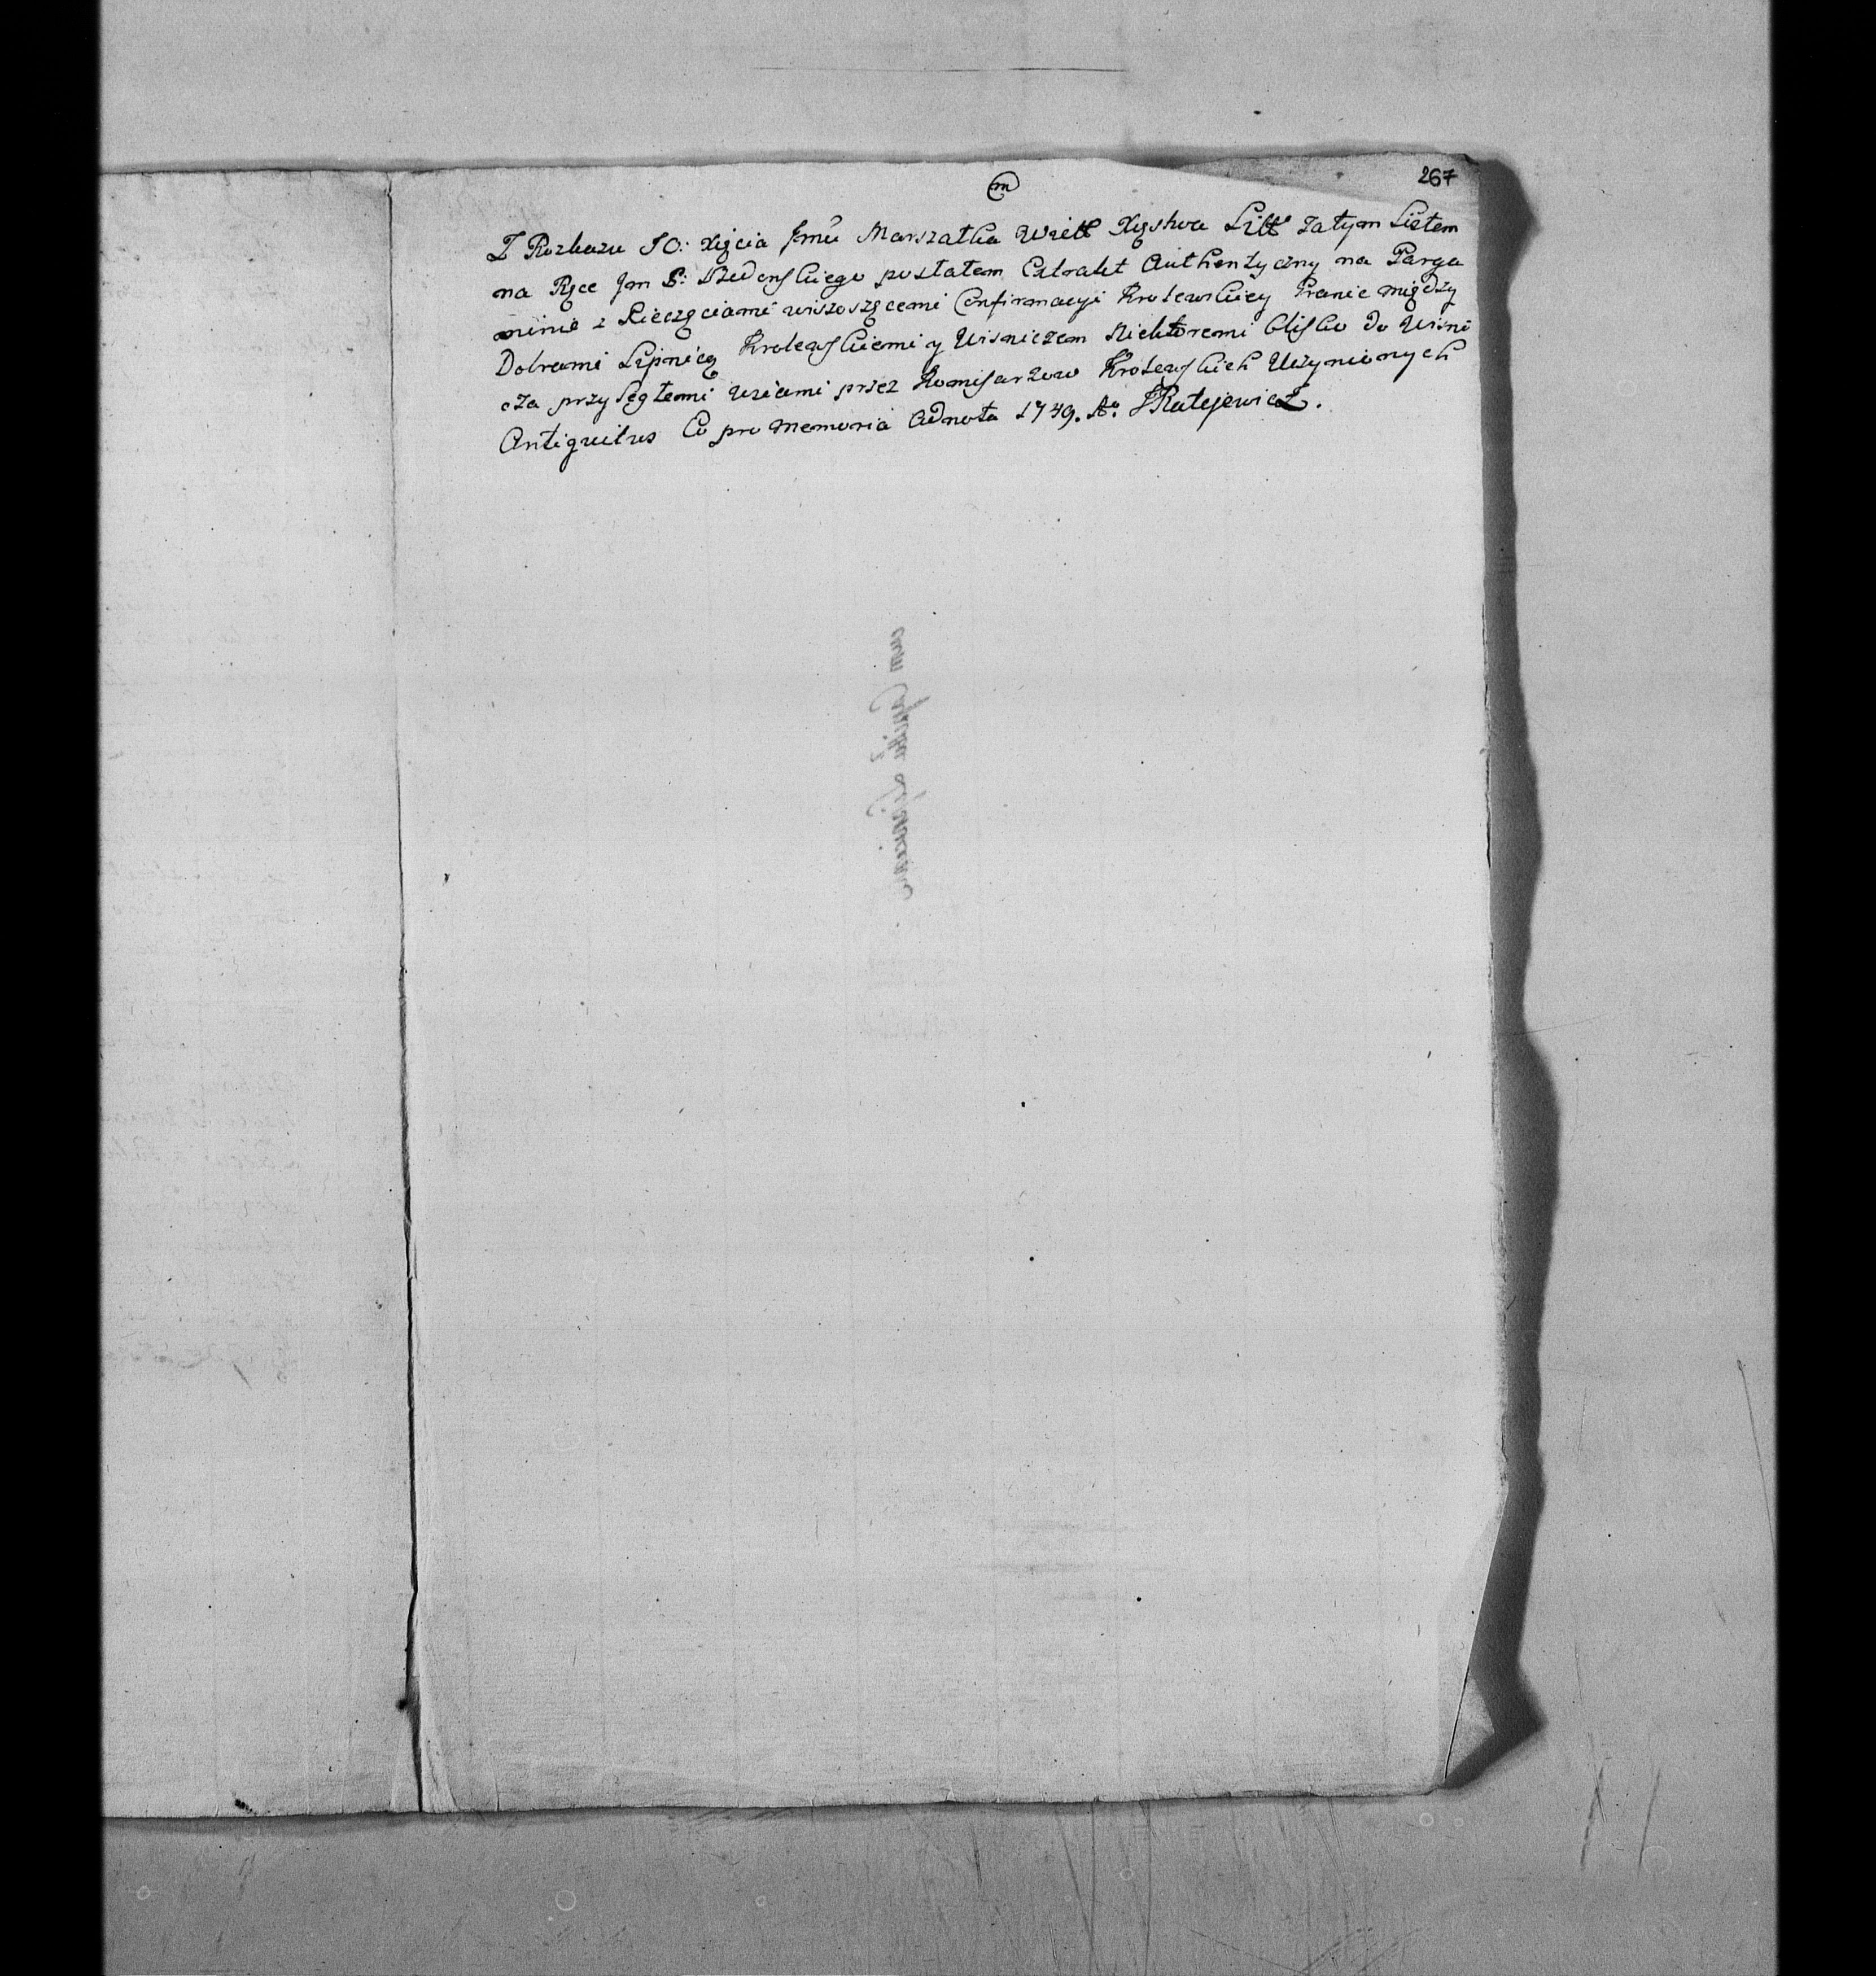 m
267
Z Rozkazu JO: Xięcia Jmći Marszałka Wiełł Xięstwa Litt zatym Listem
na Ręce Jm P: posłałem Extrakt Authentyczny na Parga
minie z Pieczęciami wiszoszęcemi Confirmacyi Krolewskiey Granic między
Dobrami Lipnicą Krolewskiemi y Wisniczem Niektoremi blisko do Wisni
cza przyległemi wsiami przez Komisarzow Krolewskich Uczynionych
Antiquitus Co pro memoria Adnota 1749. Ao. Ratejewicz.